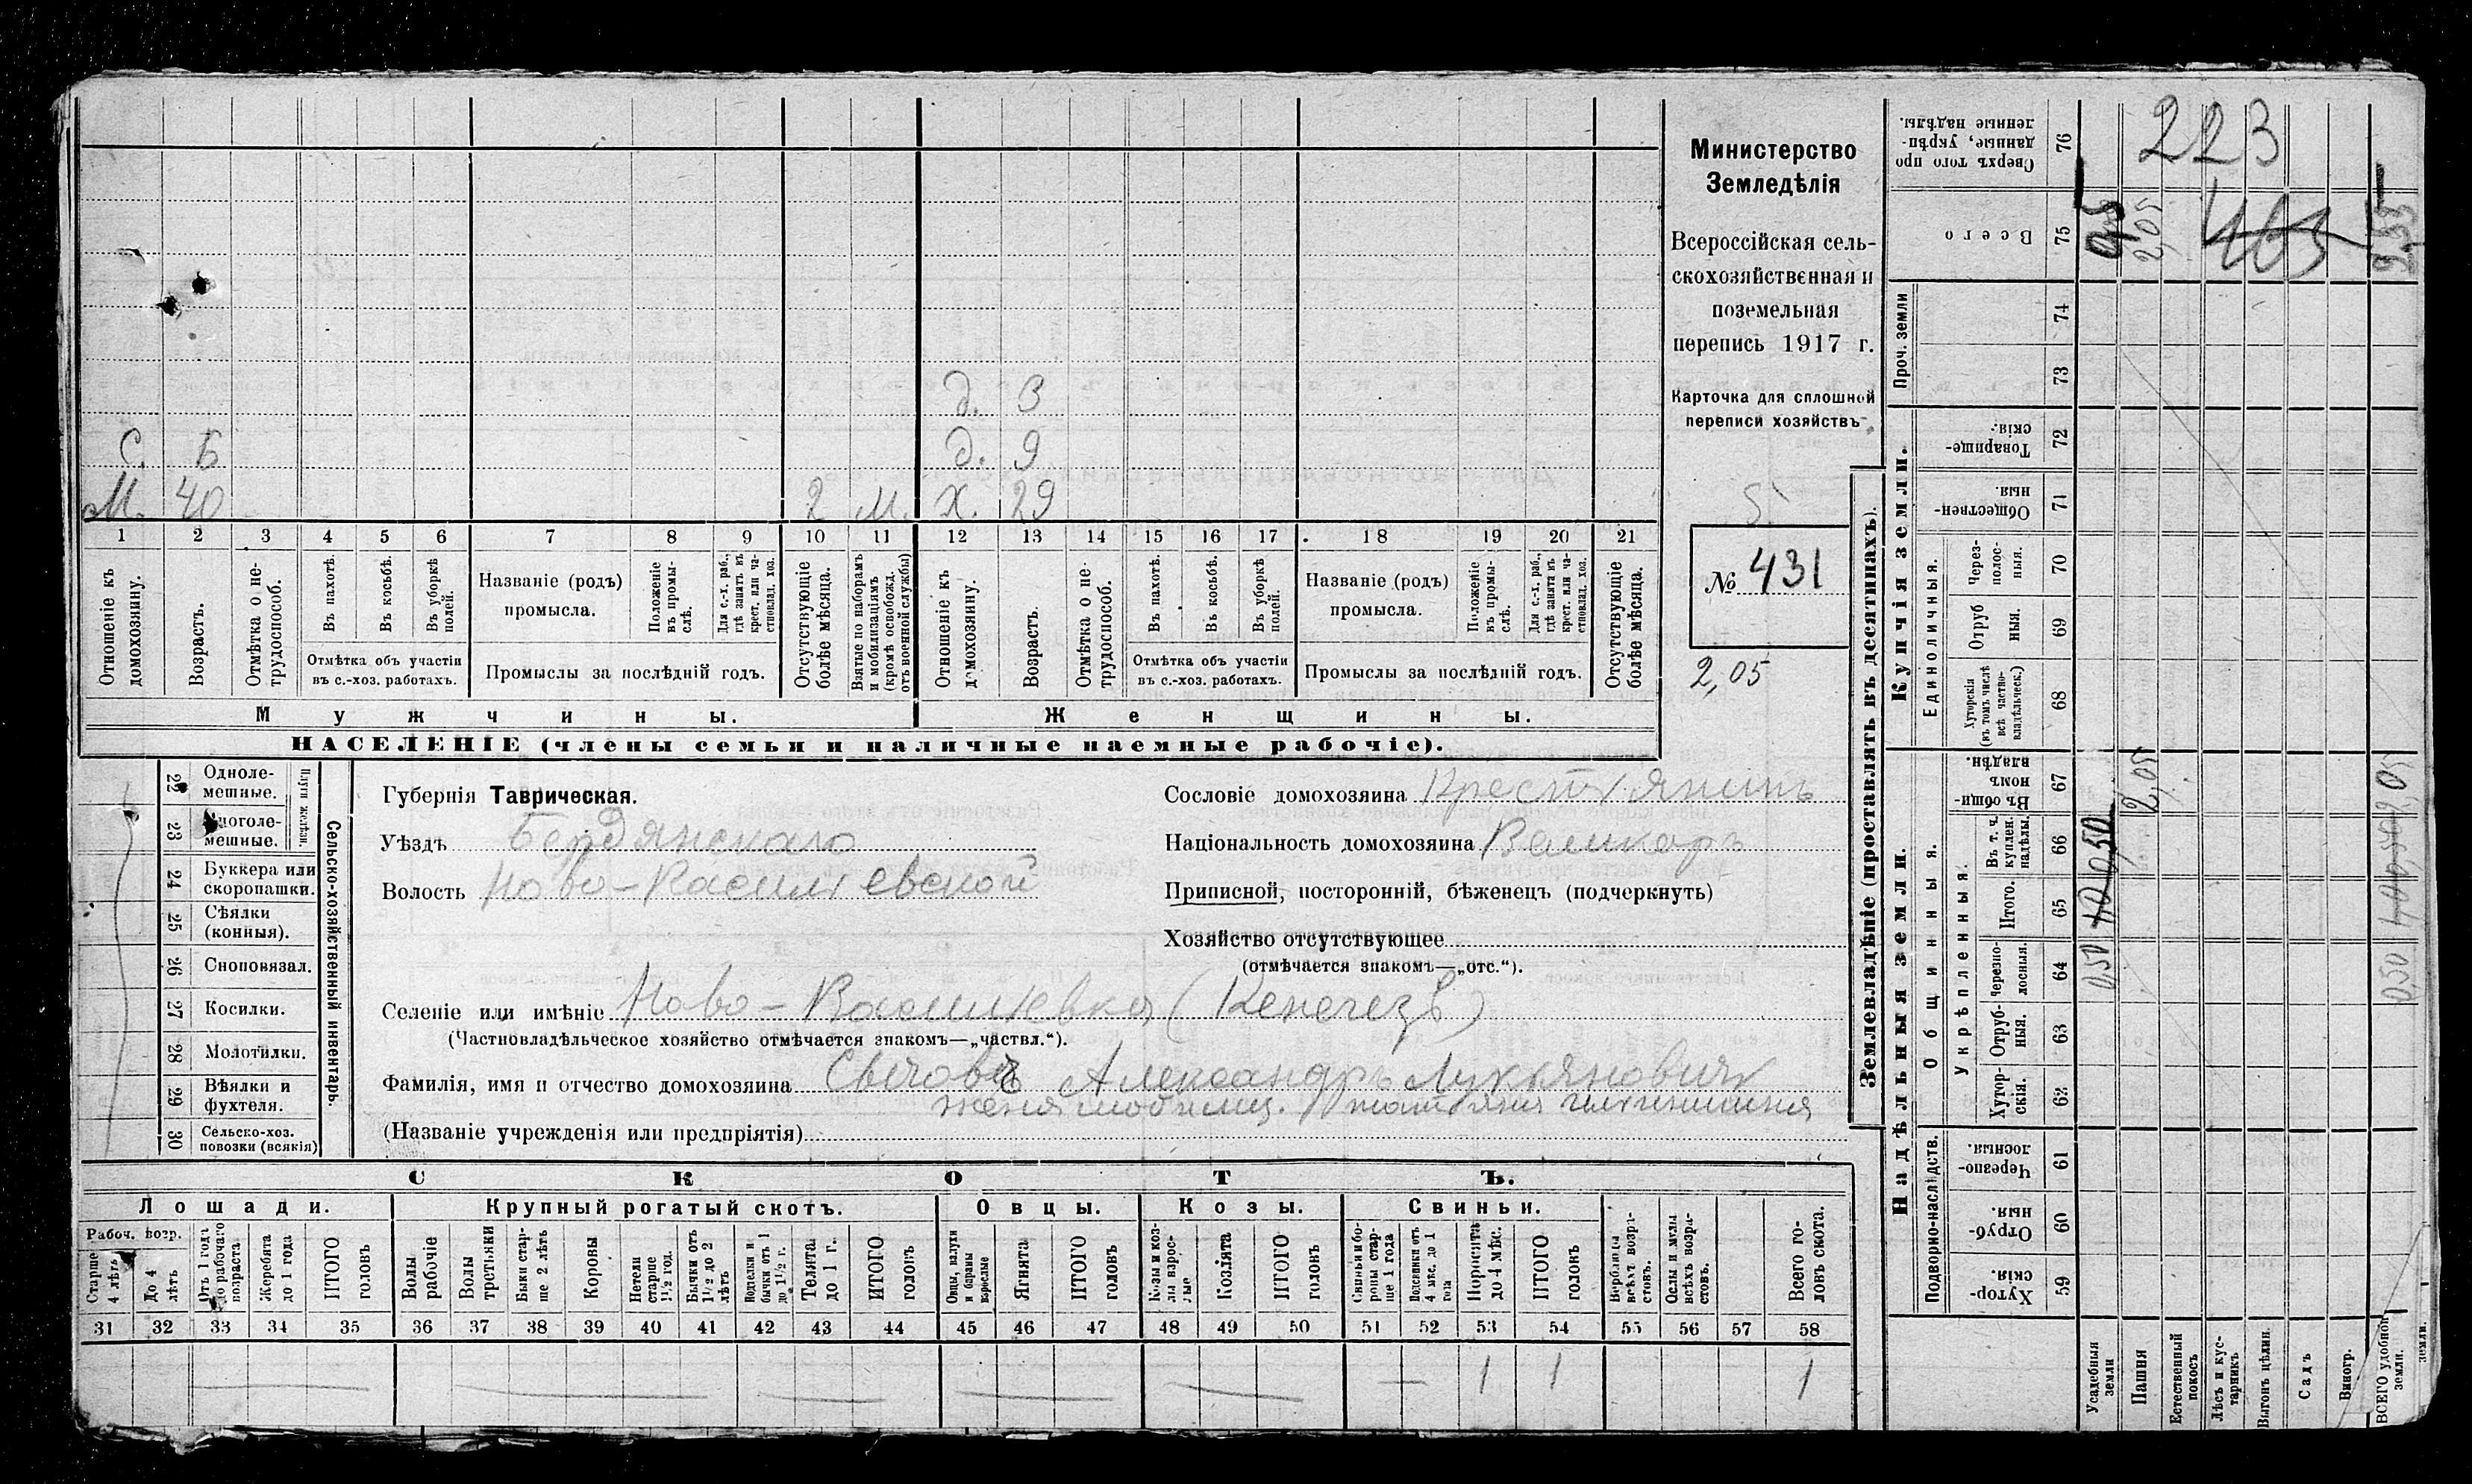 Министерство
Земледѣлія
Всероссійская сель-
скохозяйственная и
поземельная
перепись 1917 г.
Карточка для сплошной
переписи хозяйствъ
5.
№ 431
2,05
д. 3
С. 5 д. 9
М. 40 2 м. х. 29
1 2 3 4 5 6 7 8 9 10 11 12 13 14 15 16 17 18 19 20 21
Отношеніе къ домохозяину.
Возрастъ.
Отмѣтка о не-трудоспособ.
Въ пахотѣ.
Въ косьбѣ.
Въ уборкѣ полей.
Отмѣтка объ участіи въ с.-хоз. работахъ.
Названіе (родъ) промысла.
Положеніе въ промы-слѣ.
Для с.-х. раб., гдѣ занятъ въ крест. или ча-стновлад. хоз.
Промыслы за послѣдній годъ.
Отсутствующіе болѣе мѣсяца.
Взятые по наборамъ и мобилизаціямъ (кромѣ освобожд. отъ военной службы)
Отношеніе къ домохозяину.
Возрастъ.
Отмѣтка о не-трудоспособ.
Въ пахотѣ.
Въ косьбѣ.
Въ уборкѣ полей.
Отмѣтка объ участіи въ с.-хоз. работахъ.
Названіе (родъ) промысла.
Положеніе въ промы-слѣ.
Для с.-х. раб., гдѣ занята въ крест. или ча-стновлад. хоз.
Промыслы за послѣдній годъ.
Отсутствующіе болѣе мѣсяца.
Мужчины. Женщины.
НАСЕЛЕНІЕ (члены семьи и наличные наемные рабочіе).
22 Одноле-мешные.
23 Многоле-мешные.
Плуги желѣзн.
24 Буккера или скоропашки.
25 Сѣялки (конныя).
26 Сноповязал.
27 Косилки.
28 Молотилки.
29 Вѣялки и фухтеля.
30 Сельско-хоз. повозки (всякія)
Сельско-хозяйственный инвентарь.
Губернія Таврическая.
Уѣздъ Бердянскаго
Волость Ново-Васильевской
Сословіе домохозяина Крестьянинъ
Національность домохозяина Великоръ
Приписной, посторонній, бѣженецъ (подчеркнуть)
Хозяйство отсутствующее
(отмѣчается знакомъ—„отс.“).
Селеніе или имѣніе Ново-Васильевка (Кенегезъ)
(Частновладѣльческое хозяйство отмѣчается знакомъ—„частвл.“).
Фамилія, имя и отчество домохозяина Александръ Лукьяновичъ
жена мобилиз.
(Названіе учрежденія или предпріятія)
СКОТЪ.
Лошади. Крупный рогатый скотъ. Овцы. Козы. Свиньи.
Рабоч. возр.
Старше 4 лѣтъ
До 4 лѣтъ
Отъ 1 года до рабочаго возраста.
Жеребята до 1 года
ИТОГО головъ
Волы рабочіе
Волы третьяки
Быки стар-ше 2 лѣтъ
Коровы
Нетели старше 1½ год.
Бычки отъ 1½ до 2 лѣтъ
Телки и бычки отъ 1 до 1½ г.
Телята до 1 г.
ИТОГО головъ
Овцы, валухи и бараны взрослые
Ягнята
ИТОГО головъ
Козы и коз-лы взрос-лые
Козлята
ИТОГО головъ
Свиньи и бо-ровы стар-ше 1 года
Подсвинки отъ 4 мѣс. до 1 года
Поросята до 4 мѣс.
ИТОГО головъ
Верблюды всѣхъ возра-стовъ.
Ослы и мулы всѣхъ возра-стовъ.
Всего го-ловъ скота.
31 32 33 34 35 36 37 38 39 40 41 42 43 44 45 46 47 48 49 50 51 52 53 54 55 56 57 58
1 1 1
Землевладѣніе (проставлять въ десятинахъ).
Сверхъ того про данные, укрѣп-ленные надѣлы. 76
223
Всего 75
2,05
Проч. земли 74 73
Купчія земли.
Товарище-скія. 72
Обществен-ныя. 71
Единоличныя.
Через-полос-ныя. 70
Отруб ныя. 69
Хуторскія (въ томъ числѣ всѣ частно-владѣльческ.) 68
Надѣльныя земли.
Общинныя.
Въ общи-номъ владѣн. 67
2,05
Укрѣпленныя.
Въ т. ч. куплен. надѣлы. 66
Итого. 65
Черезпо-лосныя. 64
0,50 0,50
Отруб-ныя. 63
Хутор-скія. 62
Подворно-наслѣдств.
Черезпо-лосныя. 61
Отруб-ныя. 60
Хутор-скія. 59
Усадебныя земли
Пашня
Естественный покосъ
Лѣсъ и кус-тарникъ
Выгонъ цѣлин.
Садъ
Виногр.
ВСЕГО удобной земли.
земли.